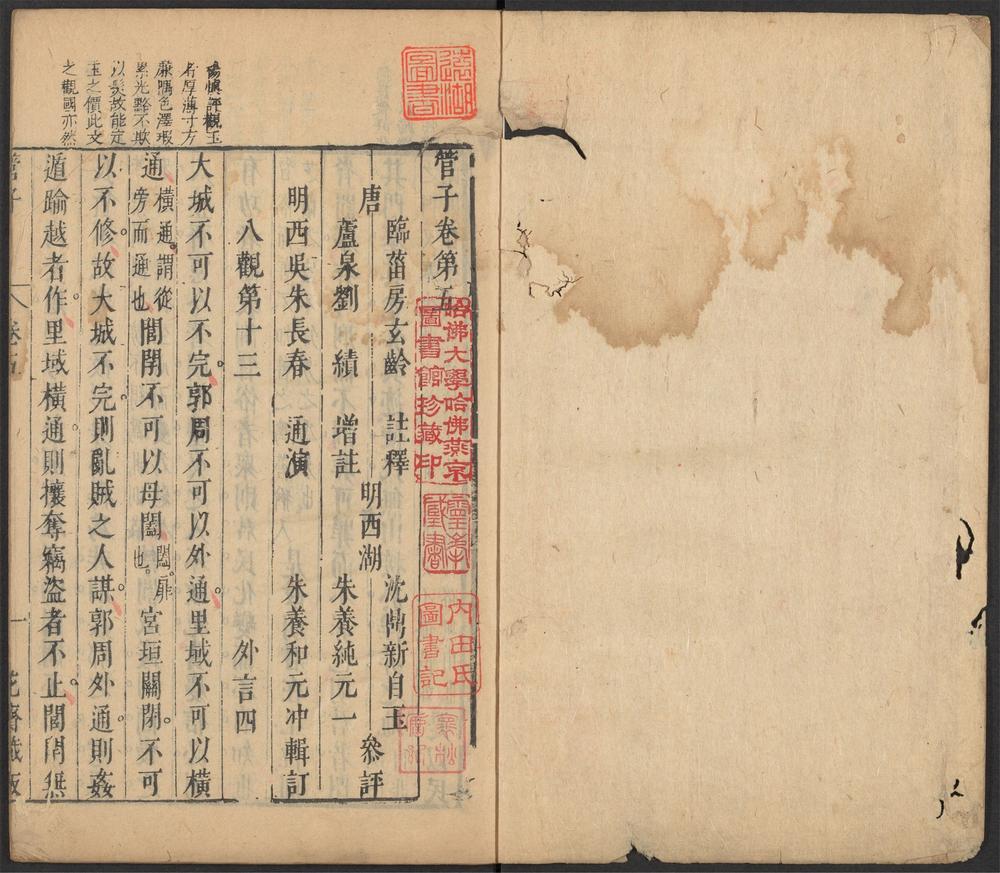 管子卷第五
唐 臨菑房玄齡 註釋
蘆泉劉 績 增註
明西吳朱長春 通演
明西湖
沈鼎新自玉
朱養純元一
參評
朱養和元冲輯訂
八觀第十三 外言四
大城不可以不完郭周不可以外通里域不可以橫
通橫通謂從旁而通也閭閈不可以毋闔闔扉也宮垣關閉不可
以不修故大城不完則亂賊之人謀郭周外通則姦
遁踰越者作里域橫通則攘奪竊盜者不止閭閈無
楊慎評觀玉
者厚薄寸方
廉隅色澤瑕
累光整不欺
以髮故能定
玉之價此文
之觀國亦然
管子
卷五
一
花齋藏板
圖書
哈佛大學哈佛燕京
圖書館珍藏印
內田氏
圖書記